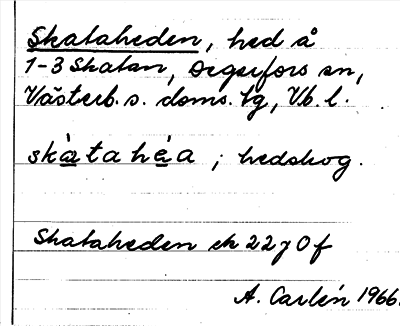 Skataheden, hed å
1-3 Skatan, Degerfors sn,
Västerb. s. doms. tg, Vb. l.
skàtahèa ; hedskog.
Skataheden ek 22 J 0 f
A. Carlén 1966.